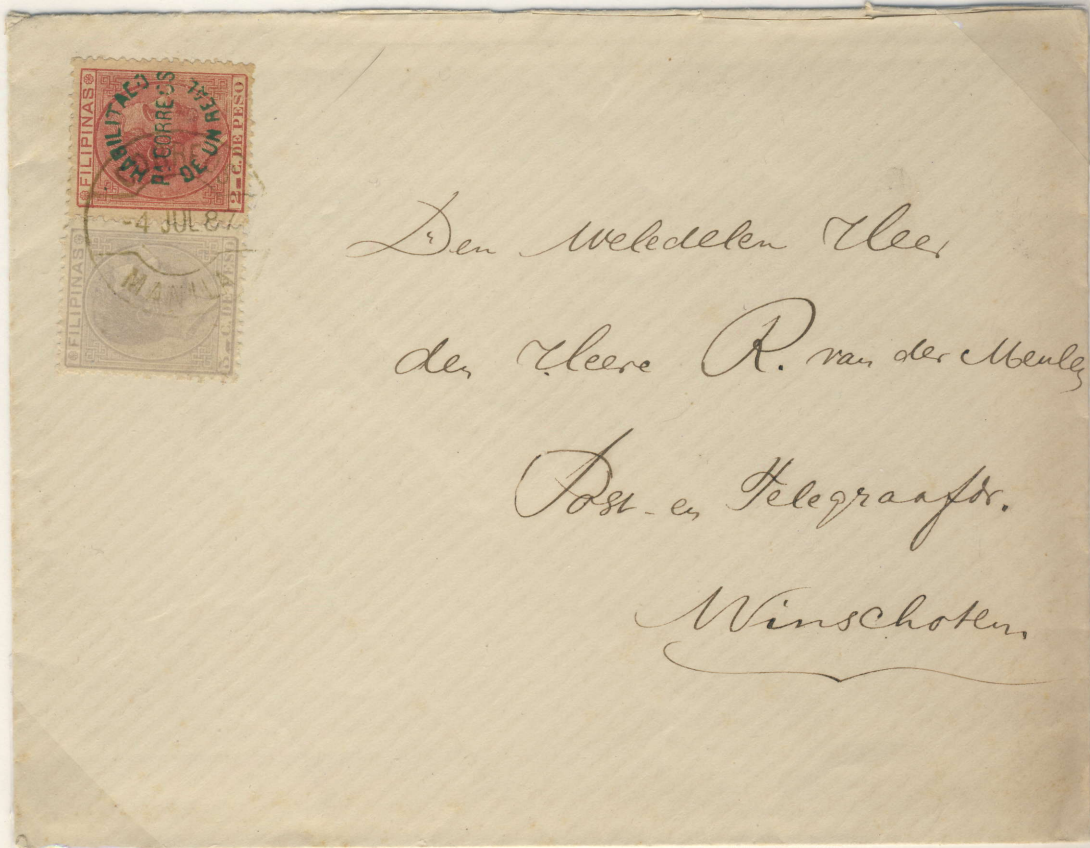 FILIPINAS
HABILITADO
PA CORREOS
DE UN REAL
2 C. DE PESO
-4 JUL 8
MANILA
FILIPINAS
C. DE PESO
Den Weledelen Heer
den Heere R. van der Meulen
Post- en Telegraafdr.
Winschoten